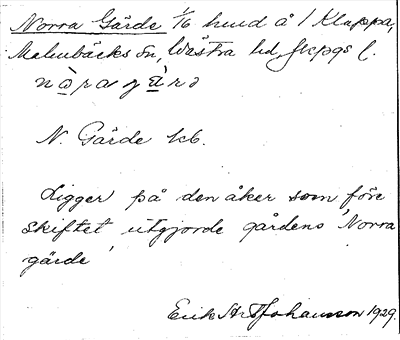 Norra Gärde 1/6 hemd å 1 Klappa,
Malmbäcks sn, Västra hd, Jkpgs l.
N. Gärde kb.
Ligger på den åker som före
skiftet utgjorde gårdens "Norra
gärde"
Erik Johansson 1929.